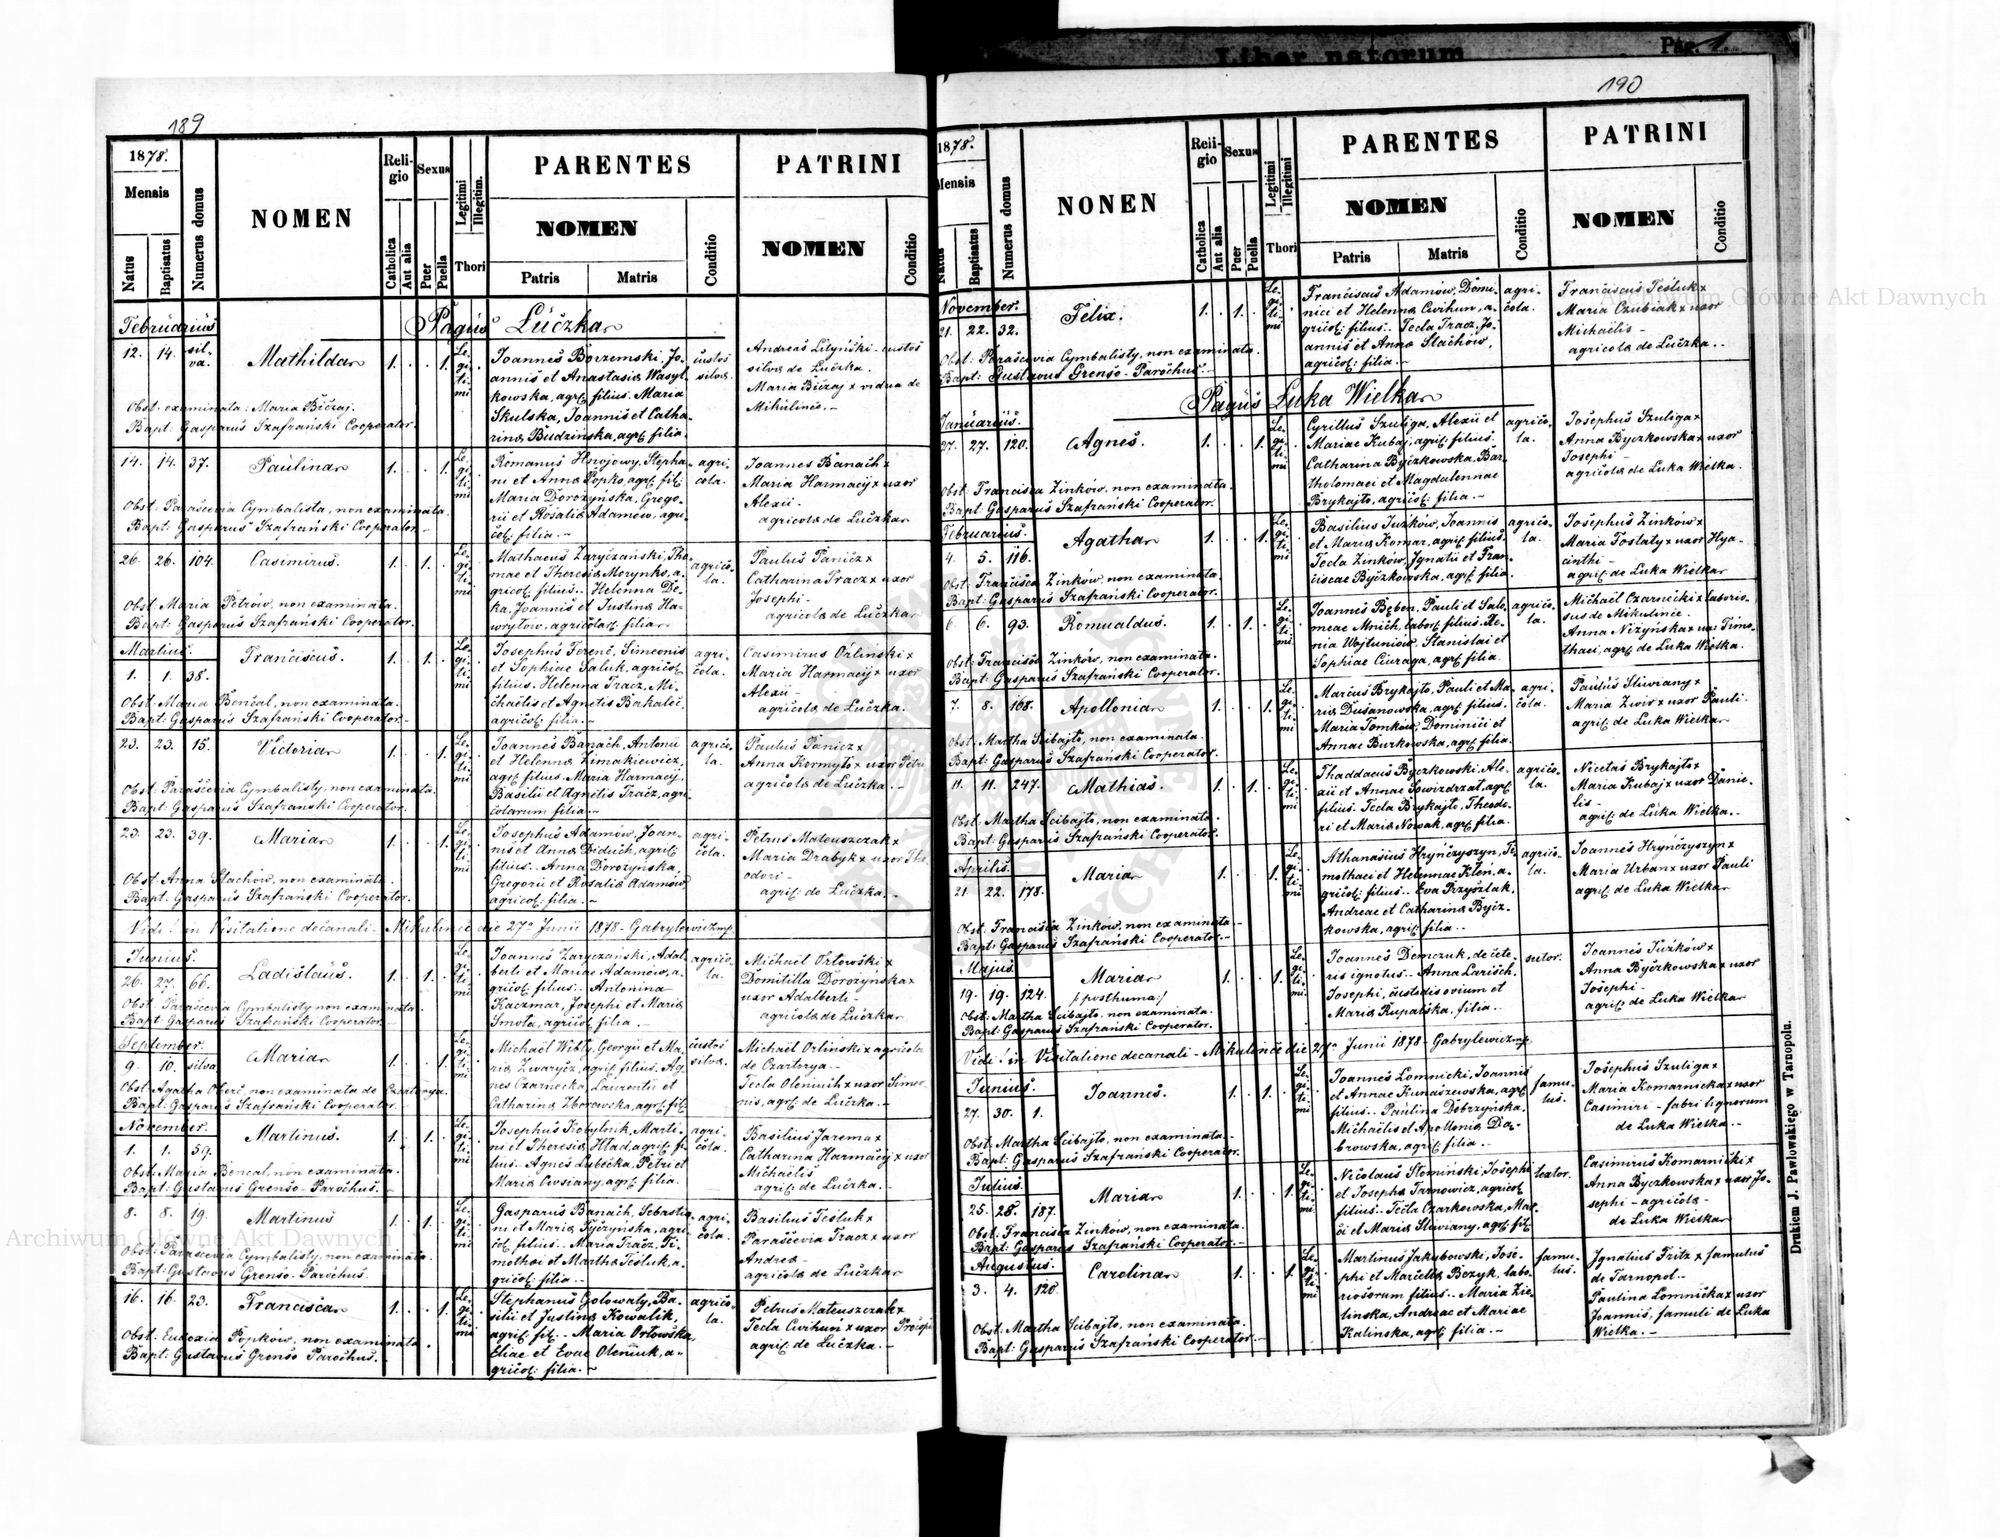 Liber natorum
Pag. 1
189
1878.
Mensis
Natus
Baptisatus
Numerus domus
NOMEN
Religio
Catholica
Aut alia
Sexus
Puer
Puella
Legitimi
Illegitim.
Thori
PARENTES
NOMEN
Patris
Matris
Conditio
PATRINI
NOMEN
Conditio
Februarius
Pagus Łuczka
12. 14. silva. Mathilda 1. 1. Legitimi
Joannes Borzemski, Joannis et Anastasia
kowska, agr. filius. Maria
Skulska, Joannis et Catharina
Budzińska, agr. filia.
custos silvæ.
Andreas Lityński - custos
silvæ de Łuczka.
Maria Biczaj x vidua de
Mikulińce. -
Obst: examinata: Maria Biczaj.
Bapt: Gasparus Szafrański Cooperator.
14. 14. 37. Paulina 1. 1. Legitimi
Romanus Hnojowy, Stephani
et Anna Popko, agr. fil:
Maria Dorożyńska, Gregorii
et Rosalia Adamów, agricol:
filia. -
agricola.
Joannes Banach x
Maria Harmacij x uxor
Alexii -
agricolæ de Łuczka
Obst: Parascevia Cymbalista, non examinata.
Bapt: Gasparus Szafrański Cooperator. -
26. 26. 104. Casimirus. 1. 1. Legitimi
Mathaeus Zaryczański, Thomae
et Theresia Morynko, agricol.
filius. Helenna Deka,
Joannis et Justina Hawryłow,
agricolar. filia
agricola.
Paulus Panicz x
Catharina Tracz x uxor
Josephi -
agricolæ de Łuczka
Obst: Maria Petrów, non examinata.
Bapt: Gasparus Szafrański Cooperator.
Martius.
1. 1. 38. Franciscus. 1. 1. Legitimi
Josephus Ferenc, Simeonis
et Sophiae Saluk, agricol.
filius. Helenna Tracz, Michaëlis
et Agnetis Bakalec,
agricol: filia. -
agricola.
Casimirus Orliński x
Maria Harmacij x uxor
Alexii -
agricolæ de Łuczka.
Obst: Maria Bencal, non examinata.
Bapt: Gasparus Szafrański Cooperator. -
23. 23. 15. Victoria 1. 1. Legitimi
Joannes Banach, Antonii
et Helenna Zimakiewicz,
agr. filius. Maria Harmacij,
Basilii et Agnetis Tracz, agricolarum
filia. -
agricola.
Paulus Panicz x
Anna Kormyło x uxor Petri
agricolæ de Łuczka. -
Obst: Parascevia Cymbalisty, non examinata.
Bapt: Gasparus Szafrański Cooperator.
23. 23. 39. Maria 1. 1. Legitimi
Josephus Adamów, Joannis
et Anna Diduch, agric.
filius. Anna Dorożyńska,
Gregorii et Rosalia Adamów,
agricol: filia. -
agricola.
Petrus Mateuszczak x
Maria Drabyk x uxor Theodori -
agric. de Łuczka. -
Obst: Anna Stachów, non examinata.
Bapt: Gasparus Szafrański Cooperator.
Vidi! in Visitatione decanali - Mikulińce die 27a Junii 1878 - Gabrylewicz mp.
Junius.
26. 27. 66. Ladislaus. 1. 1. Legitimi
Joannes Zaryczański, Adalberti
et Mariae Adamów, agricol:
filius. Antonina
Kaczmar, Josephi et Maria
Smota, agricol. filia. -
agricola.
Michaël Orłowski x
Domitilla Dorożyńska x
uxor Adalberti -
agricolæ de Łuczka
Obst: Parascevia Cymbalisty non examinata.
Bapt: Gasparus Szafrański Cooperator. -
September.
9. 10. silva Maria 1. 1. Legitimi
Michaël Wibly, Georgii et Maria
Zwarycz, agric. filius. Agnes
Czarnecka, Laurentii et
Catharina Zborowska, agr. fil.
custos silvæ.
Michaël Orliński x agricola
de Czartorya.
Tecla Oleniuch x uxor Simeonis,
agr. de Łuczka. -
Obst: Agatha Oberc non examinata de Czartorya.
Bapt: Gasparus Szafrański Cooperator. -
November.
1. 1. 59. Martinus. 1. 1. Legitimi
Josephus Kobylnik, Martini
et Theresia Hład, agric. filius.
Agnes Lubecka, Petri et
Maria Owsiany, agr. filia.
agricola.
Basilius Jarema x
Catharina Harmacij x uxor
Michaëlis
agric. de Łuczka. -
Obst: Maria Bencal, non examinata.
Bapt: Gustavus Grenso - Parochus. -
8. 8. 19. Martinus 1. 1. Legitimi
Gasparus Banach, Sebastiani
et Maria Kyczyńska, agricol.
filius. Maria Tracz, Timothei
et Martha Tesluk, agricol:
filia. -
agricola.
Basilius Tesluk x
Parascevia Tracz x uxor
Andreæ
agricolæ de Łuczka
Obst: Parascevia Cymbalisty, non examinata.
Bapt: Gustavus Grenso - Parochus.
16. 16. 23. Francisca 1. 1. Legitimi
Stephanus Gołowaty, Basilii
et Justina Kowalik,
agric. fil. - Maria Orłowska,
Eliae et Evae Oleniuk, agricol:
filia. -
agricola.
Petrus Mateuszczak x
Tecla Cwihun x uxor
agric. de Łuczka. -
Obst: Eudoxia Popków, non examinata.
Bapt: Gustavus Grenso Parochus. -
190
1878.
Mensis
Natus
Baptisatus
Numerus domus
NONEN
Religio
Catholica
Aut alia
Sexus
Puer
Puella
Legitimi
Illegitimi
Thori
PARENTES
NOMEN
Patris
Matris
Conditio
PATRINI
NOMEN
Conditio
November.
21. 22. 32. Felix. 1. 1. Legitimi
Franciscus Adamów, Dominici
et Helenna Cwihun, agricol:
filius. Tecla Tracz, Joannis
et Anna Stachów,
agricol: filia. -
agricola.
Franciscus Tesluk x
Maria Czubiak x uxor
Michaëlis -
agricolæ de Łuczka. -
Obst: Parascevia Cymbalisty, non examinata.
Bapt: Gustavus Grenso - Parochus. -
Pagus Łuka Wielka
Januarius.
27. 27. 120. Agnes. 1. 1. Legitimi
Cyrillus Szuliga, Alexii et
Mariae Kubaj, agric. filius.
Catharina Byczkowska, Bartholomaei
et Magdalennae
Brykajło, agricol. filia. -
agricola.
Josephus Szuliga x
Anna Byczkowska x uxor
Josephi -
agricolæ de Łuka Wielka.
Obst: Francisca Zinków, non examinata.
Bapt: Gasparus Szafrański Cooperator.
Februarius.
4. 5. 116. Agatha 1. 1. Legitimi
Basilius Juzków, Joannis
et Maria Komar, agric. filius.
Tecla Zinków, Ignatii et Franciscae
Byczkowska, agr. filia.
agricola.
Josephus Zinków x
Maria Tostaty x uxor Hyacinthi -
agric. de Łuka Wielka
Obst: Francisca Zinków, non examinata.
Bapt: Gasparus Szafrański Cooperator.
6. 6. 93. Romualdus. 1. 1. Legitimi
Joannes Bęben, Pauli et Salomeae
Mnich, labor. filius. Xenia
Wojtuniów, Stanislai et
Sophiae Ciuraga, agr. filia.
agricola.
Michaël Czarnecki x laboriosus
de Mikulińce.
Anna Niżyńska x ux: Timothaei,
agric. de Łuka Wielka.
Obst: Francisca Zinków, non examinata.
Bapt: Gasparus Szafrański Cooperator.
7. 8. 168. Apollonia 1. 1. Legitimi
Marcus Brykajło, Pauli et Maria
Dusanowska, agric. filius.
Maria Tomków, Dominici et
Annae Burkowska, agr. filia.
agricola.
Paulus Sliwiany x
Maria Zwir x uxor Pauli
agric. de Łuka Wielka
Obst: Martha Scibajło, non examinata.
Bapt: Gasparus Szafrański Cooperator.
11. 11. 247. Mathias. 1. 1. Legitimi
Thaddaeus Byczkowski, Alexii
et Annae Sowizdrzał, agr.
filius. Tecla Brykajło, Theodori
et Maria Nowak, agr. filia.
agricola.
Nicetas Brykajło x
Maria Kubaj x uxor Danielis -
agric. de Łuka Wielka. -
Obst: Martha Scibajło, non examinata.
Bapt: Gasparus Szafrański Cooperator.
Aprilis.
21. 22. 178. Maria 1. 1. Legitimi
Athanasius Hryńczyszyn, Timothaei
et Helennae Klen, agricol:
filius. Eva Przyszlak,
Andreae et Catharina Byczkowska,
agric. filia. -
agricola.
Joannes Hryńczyszyn x
Maria Urban x uxor Pauli
agric. de Łuka Wielka
Obst: Francisca Zinków, non examinata. -
Bapt: Gasparus Szafrański Cooperator. -
Majus.
19. 19. 124. Maria /:posthuma:/ 1. 1. Legitimi
Joannes Demczuk, de ceteris
ignotus. Anna Larisch,
Josephi, custodis ovium et
Maria Rupalska, filia. -
sutor.
Joannes Juzków x
Anna Byczkowska x uxor
Josephi -
agric. de Łuka Wielka
Obst: Martha Scibajło, non examinata.
Bapt: Gasparus Szafrański Cooperator.
Vidi! in Visitatione decanali - Mikulińce die 27a Junii 1878 - Gabrylewicz mp.
Junius.
27. 30. 1. Joannes. 1. 1. Legitimi
Joannes Łomnicki, Joannis
et Annae Kunaszewska, agr.
filius. - Paulina Dobrzyńska,
Michaëlis et Apollonia Dąbrowska,
agric. filia. -
famulus.
Josephus Szuliga x
Maria Komarnicka x uxor
Casimiri - fabri lignorum
de Łuka Wielka. -
Obst: Martha Scibajło, non examinata. -
Bapt: Gasparus Szafrański Cooperator.
Julius.
25. 28. 187. Maria 1. 1. Legitimi
Nicolaus Słomiński, Josephi
et Josepha Tarnowicz, agricol.
filius. Tecla Czarkowska, Marci
et Maria Sliwiany, agr. fil.
textor.
Casimirus Komarnicki x
Anna Byczkowska x uxor Josephi -
agricolæ -
de Łuka Wielka
Obst: Francisca Zinków, non examinata.
Bapt: Gasparus Szafrański Cooperator. -
Augustus.
3. 4. 120. Carolina 1. 1. Legitimi
Martinus Jakubowski, Josephi
et Mariella Bezyk, laboriosorum
filius. - Maria Zielinska,
Andreae et Mariae
Kalinska, agr. filia. -
famulus.
Ignatius Fritz x famulus
de Tarnopol. -
Paulina Łomnicka x uxor
Joannis, famuli de Łuka
Wielka. -
Obst: Martha Scibajło, non examinata.
Bapt: Gasparus Szafrański Cooperator. -
Drukiem J. Pawłowskiego w Tarnopolu.
Archiwum Główne Akt Dawnych
Archiwum Główne Akt Dawnych